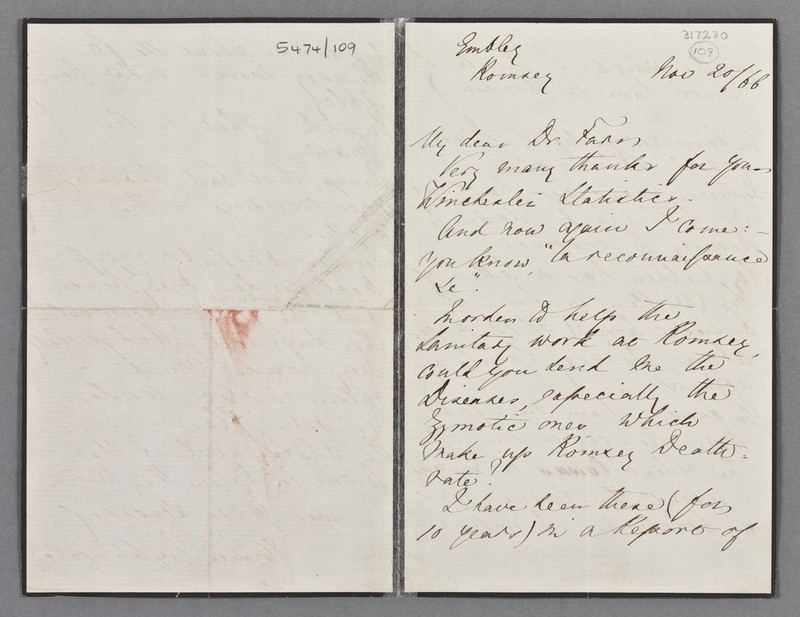 5474/109
317230
109
Embley
Romsey Nov 20/66
My dear Dr. Farr
Very many thanks for your
Winchester Statistics.
And now again I come: –
you know, "la reconnaissance
&c".
In order to help the
Sanitary work at Romsey,
could you send me the
Diseases, especially the
Zymotic ones which
make up Romsey Death-
rate?
I have seen these (for
10 years) in a Report of